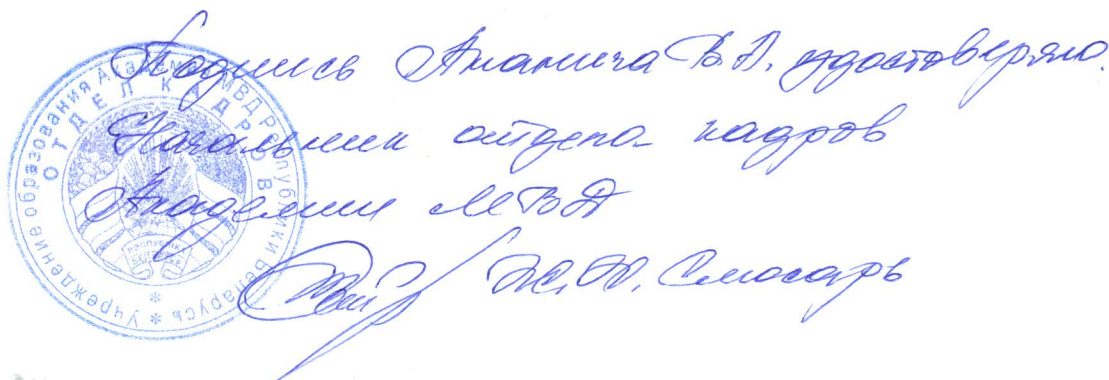 Подпись Ананича В.А. удостоверяю.
Начальник отдела кадров
Академии МВД
Слюсарь
Учреждение образования Академия МВД Республики Беларусь
ОТДЕЛ КАДРОВ
РЕСПУБЛИКА
БЕЛАРУСЬ